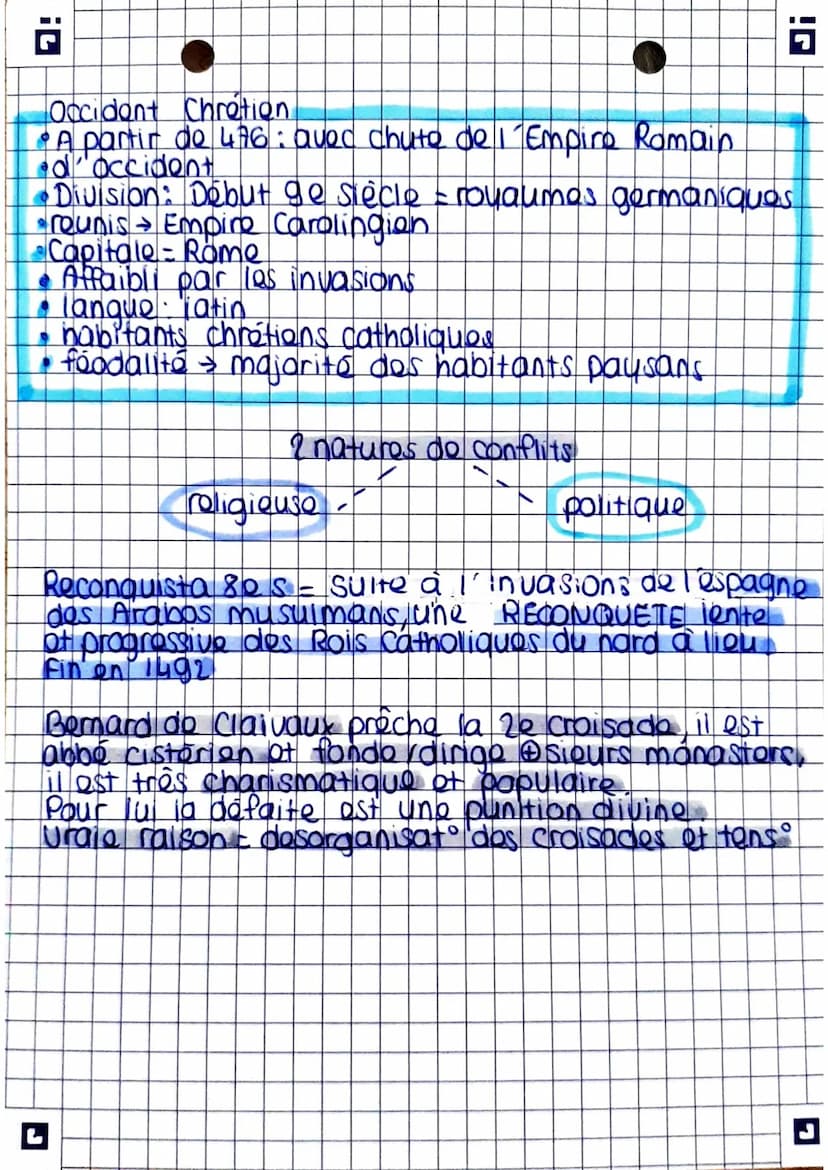 Occident Chrétien
• A partir de 476 : avec chute de l'Empire Romain
• d'occident
• Division : Début 9e siècle = royaumes germaniques
• reunis → Empire Carolingien
• Capitale = Rome
• Affaibli par les invasions
• langue : latin
• habitants chrétiens catholiques
• féodalité → majorité des habitants paysans
2 natures de conflits
religieuse
politique
Reconquista 8e s = suite à l'invasions de l'espagne
des Arabes musulmans, une RECONQUETE lente
et progressive des Rois Catholiques du nord à lieu.
Fin en 1492
Bernard de Claivaux prêche la 2e croisade, il est
abbé cistérien et fonde/dirige ⊕sieurs monasters,
il est très charismatique et populaire.
Pour lui la défaite est une punition divine.
Vraie raison = desorganisat° des croisades et tens°